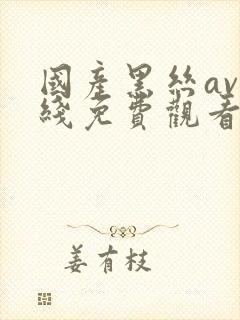 國產黑絲av
綫免費觀看
姜有枝